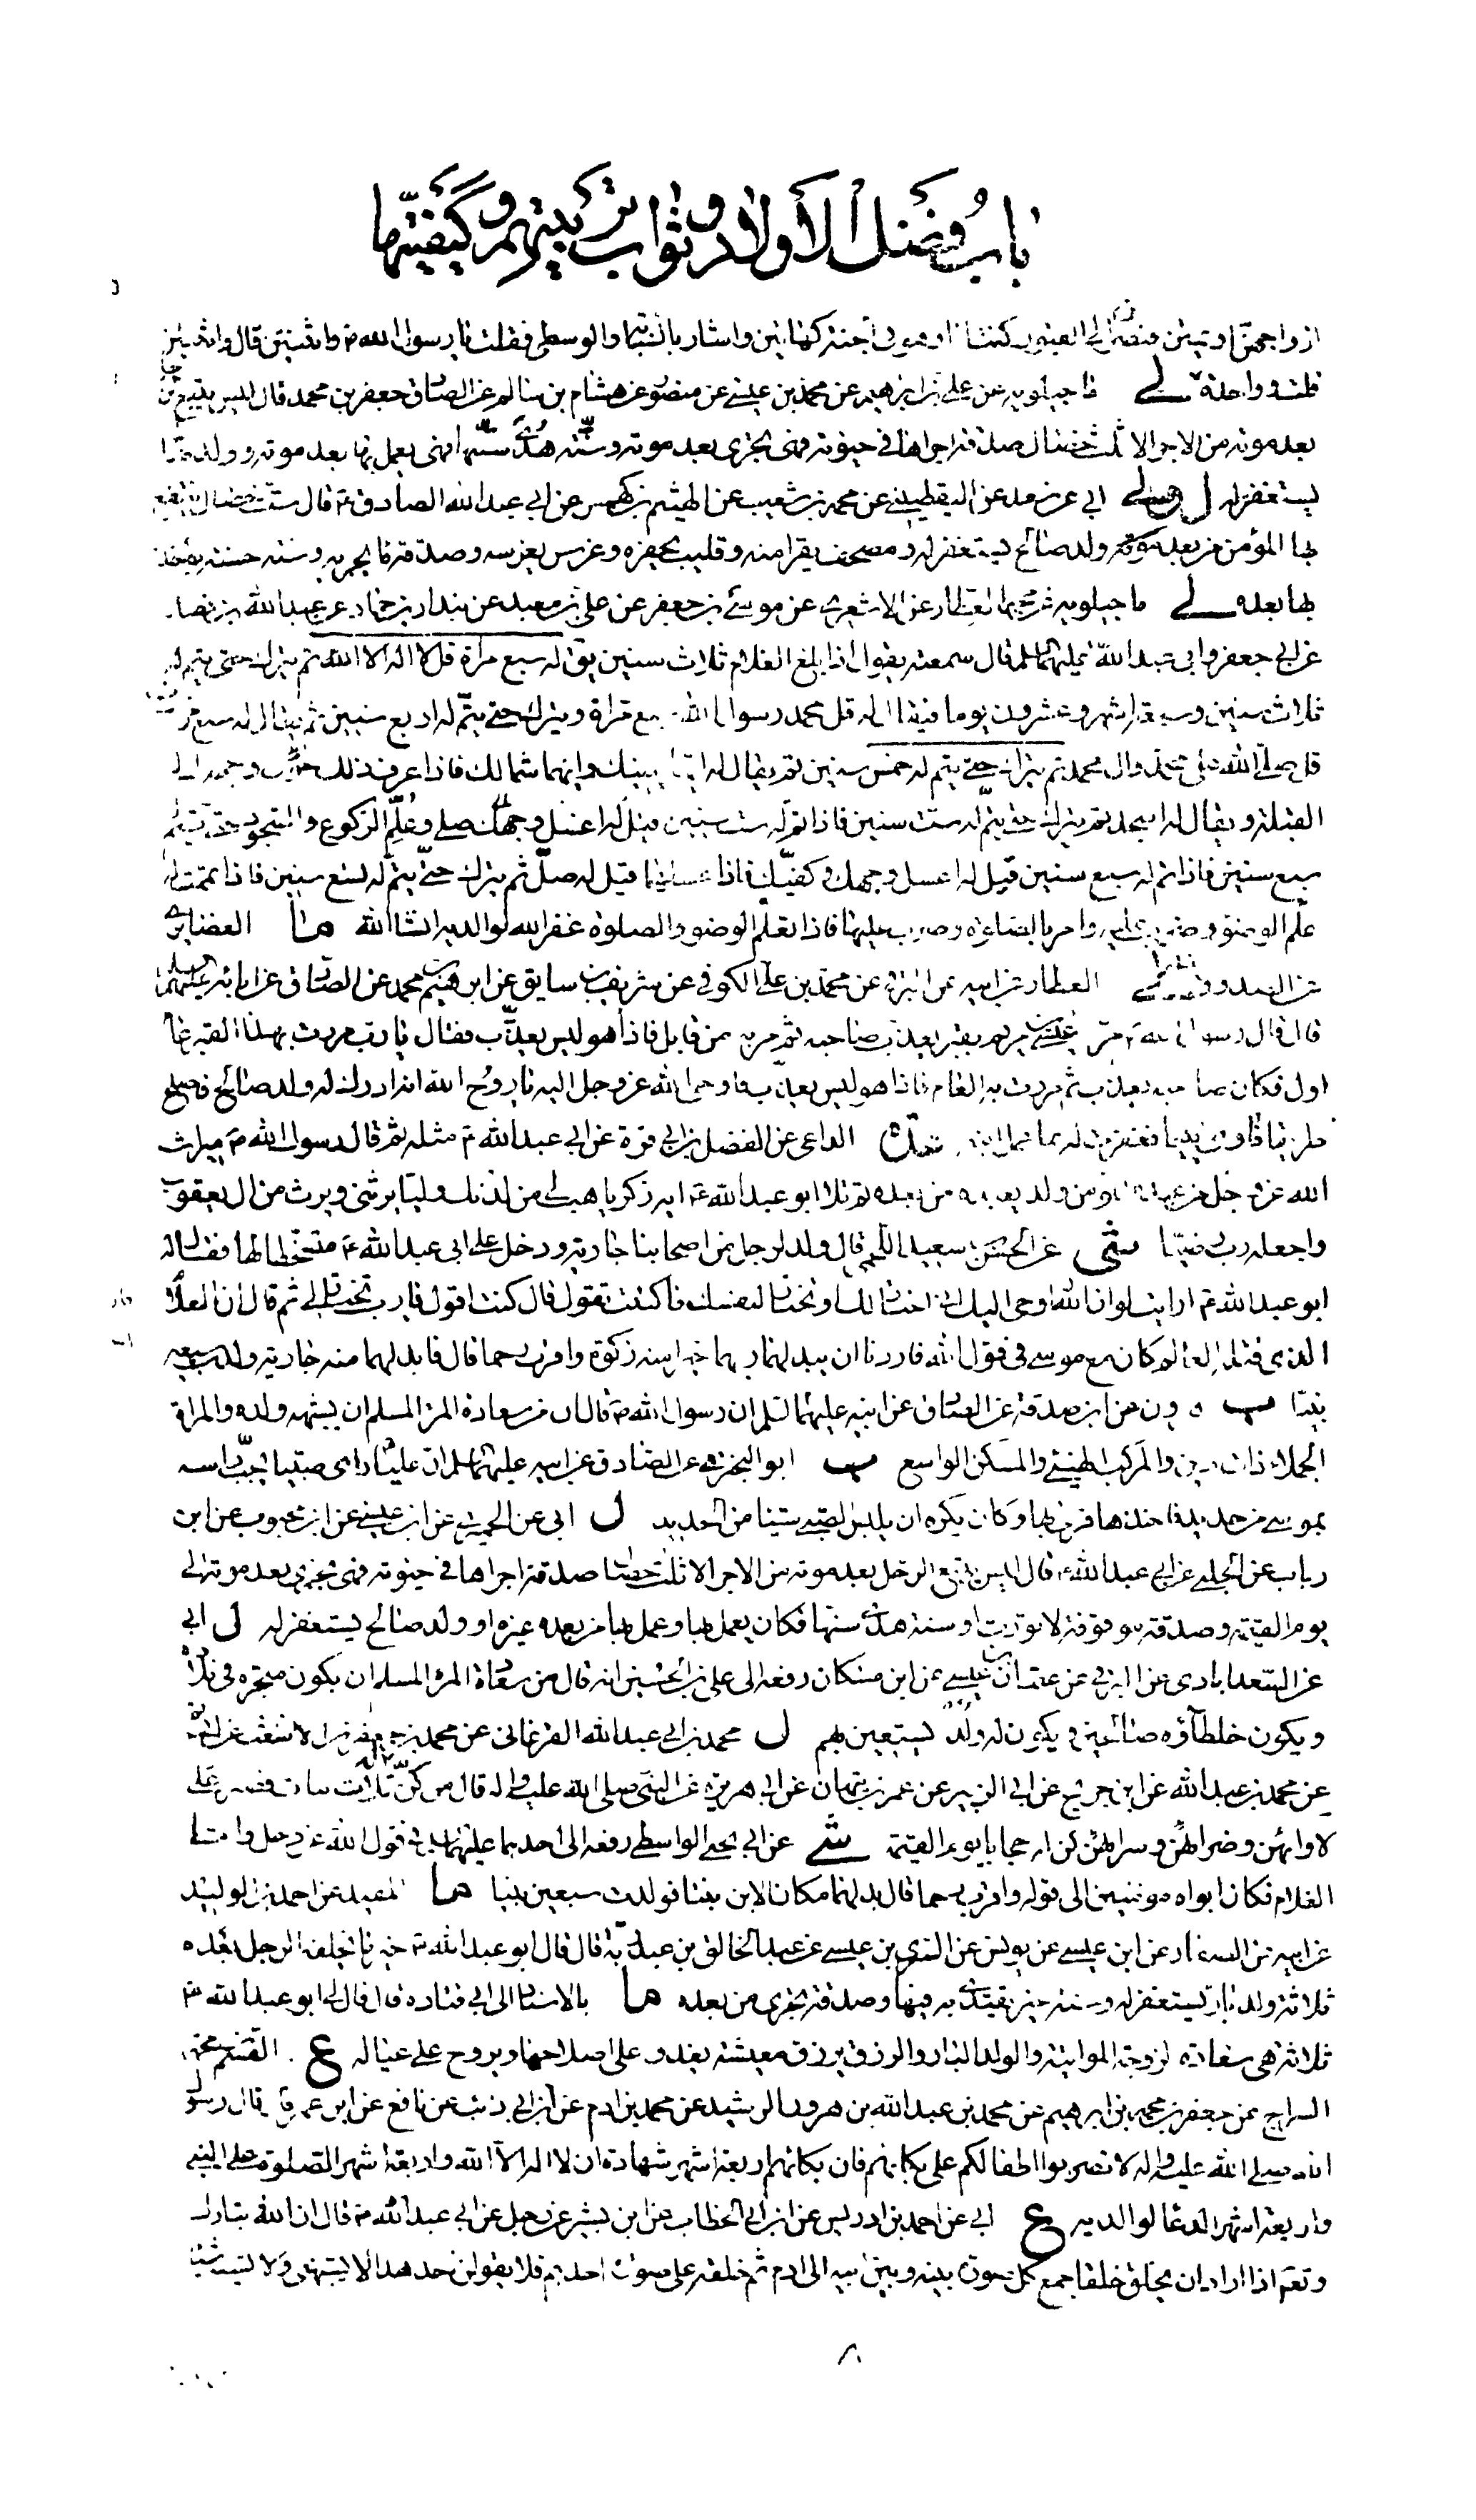 باب فضل الأولاد وثواب تربيتهم وكيفيتها
ازواجهن او يمتن فيصرن الى القبور كنت انا وهو في الجنة كهاتين واشار باصبعيه والوسطى فقلت يا رسول الله ص واثنتين قال واثنتين
قلت وواحدة لي ماجيلويه عن علي بن ابرهيم عن محمد بن عيسى عن منصور عن هشام بن سالم عن الصادق جعفر بن محمد قال ليس يتبع الرجل
بعد موته من الاجر الا ثلث خصال صدقة اجراها في حيوته فهي تجري بعد موته وسنة هدى سنها فهي يعمل بها بعد موته وولد
يستغفر له ل لي ابي عن سعد عن اليقطيني عن محمد بن شعيب عن الهيثم بن كهمس عن ابي عبد الله الصادق ع قال ست خصال ينتفع
بها المؤمن من بعد موته ولد صالح يستغفر له ومصحف يقرا منه وقليب يحفره وغرس يغرسه وصدقة ماء يجريه وسنة حسنة يؤخذ
بها بعده لي ماجيلويه عن محمد العطار عن الاشعري عن موسى بن جعفر عن علي بن معبد عن بندار بن حماد عن عبد الله بن فضا
عن ابي جعفر وابي عبد الله عليهما السلم قال سمعته يقول اذا بلغ الغلام ثلاث سنين يق له سبع مراة قل لا اله الا الله ثم يترك حتى يتم له
ثلاث سنين وسبعة اشهر وعشرون يوما فيقال له قل محمد رسول الله سبع مراة ويترك حتى يتم له اربع سنين ثم يقال له سبع مرات
قل صلى الله على محمد وال محمد ثم يترك حتى يتم له خمس سنين ثم يقال له ايهما يمينك وايهما شمالك فاذا عرف ذلك حول وجهه الى
القبلة ويقال له اسجد ثم يترك حتى يتم له ست سنين فاذا تم له ست سنين قيل له اغسل وجهك صلى وعلم الركوع والسجود حتى يتم له
سبع سنين فاذا تم له سبع سنين قيل له اغسل وجهك وكفيك فاذا غسلهما قيل له صل ثم يترك حتى يتم له تسع سنين فاذا تمت له
علم الوضوء وضرب عليه وامر بالصلوة وضرب عليها فاذا تعلم الوضوء والصلوة غفر الله لوالديه انشاء الله ما الغضايري
عن الصدوق لي العطار عن ابيه عن البرقي عن محمد بن علي الكوفي عن شريف بن سابق عن ابرهيم بن محمد عن الصادق عن ابائه عليهم السلم
قال قال رسول الله ص مر عيسى بن مريم بقبر يعذب صاحبه ثم مر به من قابل فاذا هو ليس يعذب فقال يا رب مررت بهذا القبر عام
اول فكان صاحبه يعذب ثم مررت به العام فاذا هو ليس يعذب فاوحى الله عز وجل اليه يا روح الله انه ادرك له ولد صالح فاصلح
طريقا واوى يتيما فغفرت له بما عمل ابنه الداعي عن الفضل بن ابي قرة عن ابي عبد الله ع مثله ثم قال رسول الله ص ميراث
الله عز وجل من عبده المؤمن ولد يعبده من بعده ثم تلا ابو عبد الله ع اية زكريا هب لي من لدنك وليا يرثني ويرث من ال يعقوب
واجعله رب رضيا شي عن الحسن بن سعيد اللخمي قال ولد لرجل من اصحابنا جارية ودخل على ابي عبد الله ع متسخطا لها فقال له
ابو عبد الله ع ارايت لو ان الله اوحى اليك اني اختار لك او تختار لنفسك ما كنت تقول قال كنت اقول يا رب تختار لي ثم قال ان الغلام
الذي قتله العالم كان مع موسى في قول الله فاردنا ان يبدلهما ربهما خيرا منه زكوة واقرب رحما قال فابدلهما منه جارية ولدت سبعين
نبيا ب هرون عن ابن صدقة عن الصادق عن ابيه عليهما السلم ان رسول الله ص قال ان من سعادة المرء المسلم ان يشبهه ولده والمراة
الجملاء ذات دين والمركب الهنيئ والمسكن الواسع ب ابو البختري عن الصادق عن ابيه عليهما السلم ان عليا راى صبيا تحت راسه
موسى من حديد فاخذها فرمى بها وكان يكره ان يلبس الصبي شيئا من الحديد ل ابي عن الحميري عن ابن عيسى عن ابن محبوب عن ابن
رباب عن الحلبي عن ابي عبد الله ع قال ليس يتبع الرجل بعد موته من الاجر الا ثلث خصال صدقة اجراها في حيوته فهي تجري بعد موته الى
يوم القيمة وصدقة موقوفة لا تورث او سنة هدى سنها فكان يعمل بها وعمل بها من بعده غيره او ولد صالح يستغفر له ل ابي
عن السعدابادي عن البرقي عن عثمان بن عيسى عن ابن مسكان رفعه الى علي بن الحسين انه قال من سعادة المرء المسلم ان يكون متجره في بلاده
ويكون خلطاؤه صالحين ويكون له ولد يستعين بهم ل محمد بن ابي عبد الله الفرغاني عن محمد بن جعفر بن الاشعث عن ابي
عن محمد بن عبد الله عن ابن جريج عن ابي الزبير عن عمر بن تيهان عن ابي هريرة عن النبي صلى الله عليه واله قال من كن له ثلاث بنات فصبر على
لاوائهن وضرائهن وسرائهن كن له حجابا يوم القيمة شي عن ابي يحيى الواسطي رفعه الى احدهما عليهما السلم في قول الله عز وجل واما
الغلام فكان ابواه مؤمنين الى قوله واقرب رحما قال بدلهما مكان الابن بنتا فولدت سبعين نبيا ما المفيد عن احمد بن الوليد
عن ابيه عن الصفار عن ابن عيسى عن يونس عن السري بن عيسى عن عبد الخالق بن عبد ربه قال قال ابو عبد الله ع خير ما يخلفه الرجل بعده
ثلاثة ولد بار يستغفر له وسنة خير يقتدى به فيها وصدقة تجري من بعده ما بالاسناد الى ابي قتادة قال قال لي ابو عبد الله ع
ثلاثة هي سعادة الزوجة المواتية والولد البار والرزق يرزق معيشته يغدو على اصلاحها ويروح على عياله ع القسم بن محمد
السراج عن جعفر بن محمد بن ابرهيم عن محمد بن عبد الله بن هرون الرشيد عن محمد بن ادم عن ابن ابي ذئب عن نافع عن ابن عمر قال قال رسول
الله صلى الله عليه واله لا تضربوا اطفالكم على بكائهم فان بكائهم اربعة اشهر شهادة ان لا اله الا الله واربعة اشهر الصلوة على النبي
واربعة اشهر الدعا لوالديه ع ابي عن احمد بن ادريس عن ابن ابي الخطاب عن ابن بشير عن رجل عن ابي عبد الله ع قال ان الله تبارك
وتعم اذا اراد ان يخلق خلقا جمع كل صورة بينه وبين ابيه الى ادم ثم خلقه على صورة احدهم فلا يقولن احد هذا لا يشبهني ولا يشبه شيئا
٨